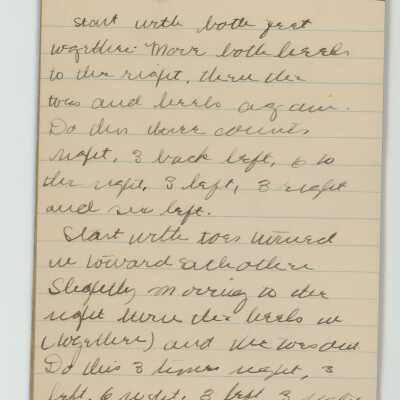 Start with both feet
together. Move both heels
to the right, then the
toes and heels again.
Do this three counts
right, 3 back left, 6 to
the right, 3 left, 3 right
and six left.
Start with toes turned
in toward each other
Slightly moving to the
right turn the heels in
(together) and the toes out
Do this 3 times right, 3
left, 6 right, 3 left 3 right